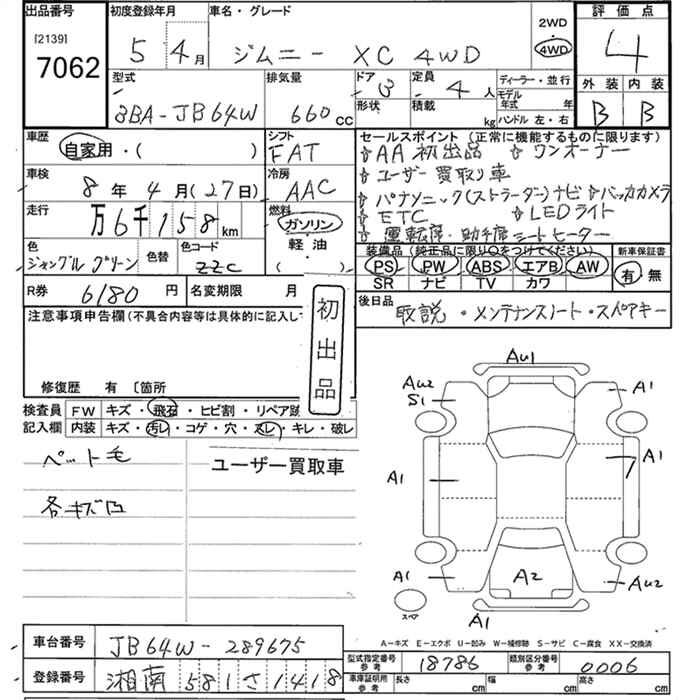 出品番号
[2139]
7062
初度登録年月
5 4月
車名・グレード
ジムニー XC 4WD
2WD
4WD
評価点
4
外装 内装
B B
型式
3BA-JB64W
排気量
660cc
ドア
3
形状
定員
4人
積載 kg
ディーラー・並行
モデル年式 年
ハンドル 左・右
車歴
自家用・( )
シフト
FAT
車検
8年4月(27日)
冷房
AAC
走行
万6千158km
燃料
ガソリン
軽油
( )
色
ジャングルグリーン
色替
色コード
ZZC
セールスポイント(正常に機能するものに限ります)
☆AA初出品 ☆ワンオーナー
☆ユーザー買取り車
☆パナソニック(ストラーダー)ナビ ☆バックカメラ
☆ETC ☆LEDライト
☆運転席・助手席シートヒーター
装備品(純正品に限り○をつけてください)
PS PW ABS エアB AW
SR ナビ TV カワ
新車保証書
有 無
R券 6180円
名変期限 月
後日品
取説・メンテナンスノート・スペアキー
注意事項申告欄(不具合内容等は具体的に記入し
初出品
修復歴 有 〔箇所
検査員記入欄
FW キズ・飛石・ヒビ割・リペア跡
内装 キズ・汚レ・コゲ・穴・スレ・キレ・破レ
ペット毛
ユーザー買取車
各キズ凹
AU1
AU2
S1
A1
A1
A1
A1
A2
AU2
A1
スペア
A-キズ E-エクボ U-凹み W-補修跡 S-サビ C-腐食 XX-交換済
車台番号 JB64W-289675
登録番号 湘南581さ1418
型式指定番号 参考 18786
類別区分番号 参考 0006
車庫証明用 参考 長さ cm 幅 cm 高さ cm